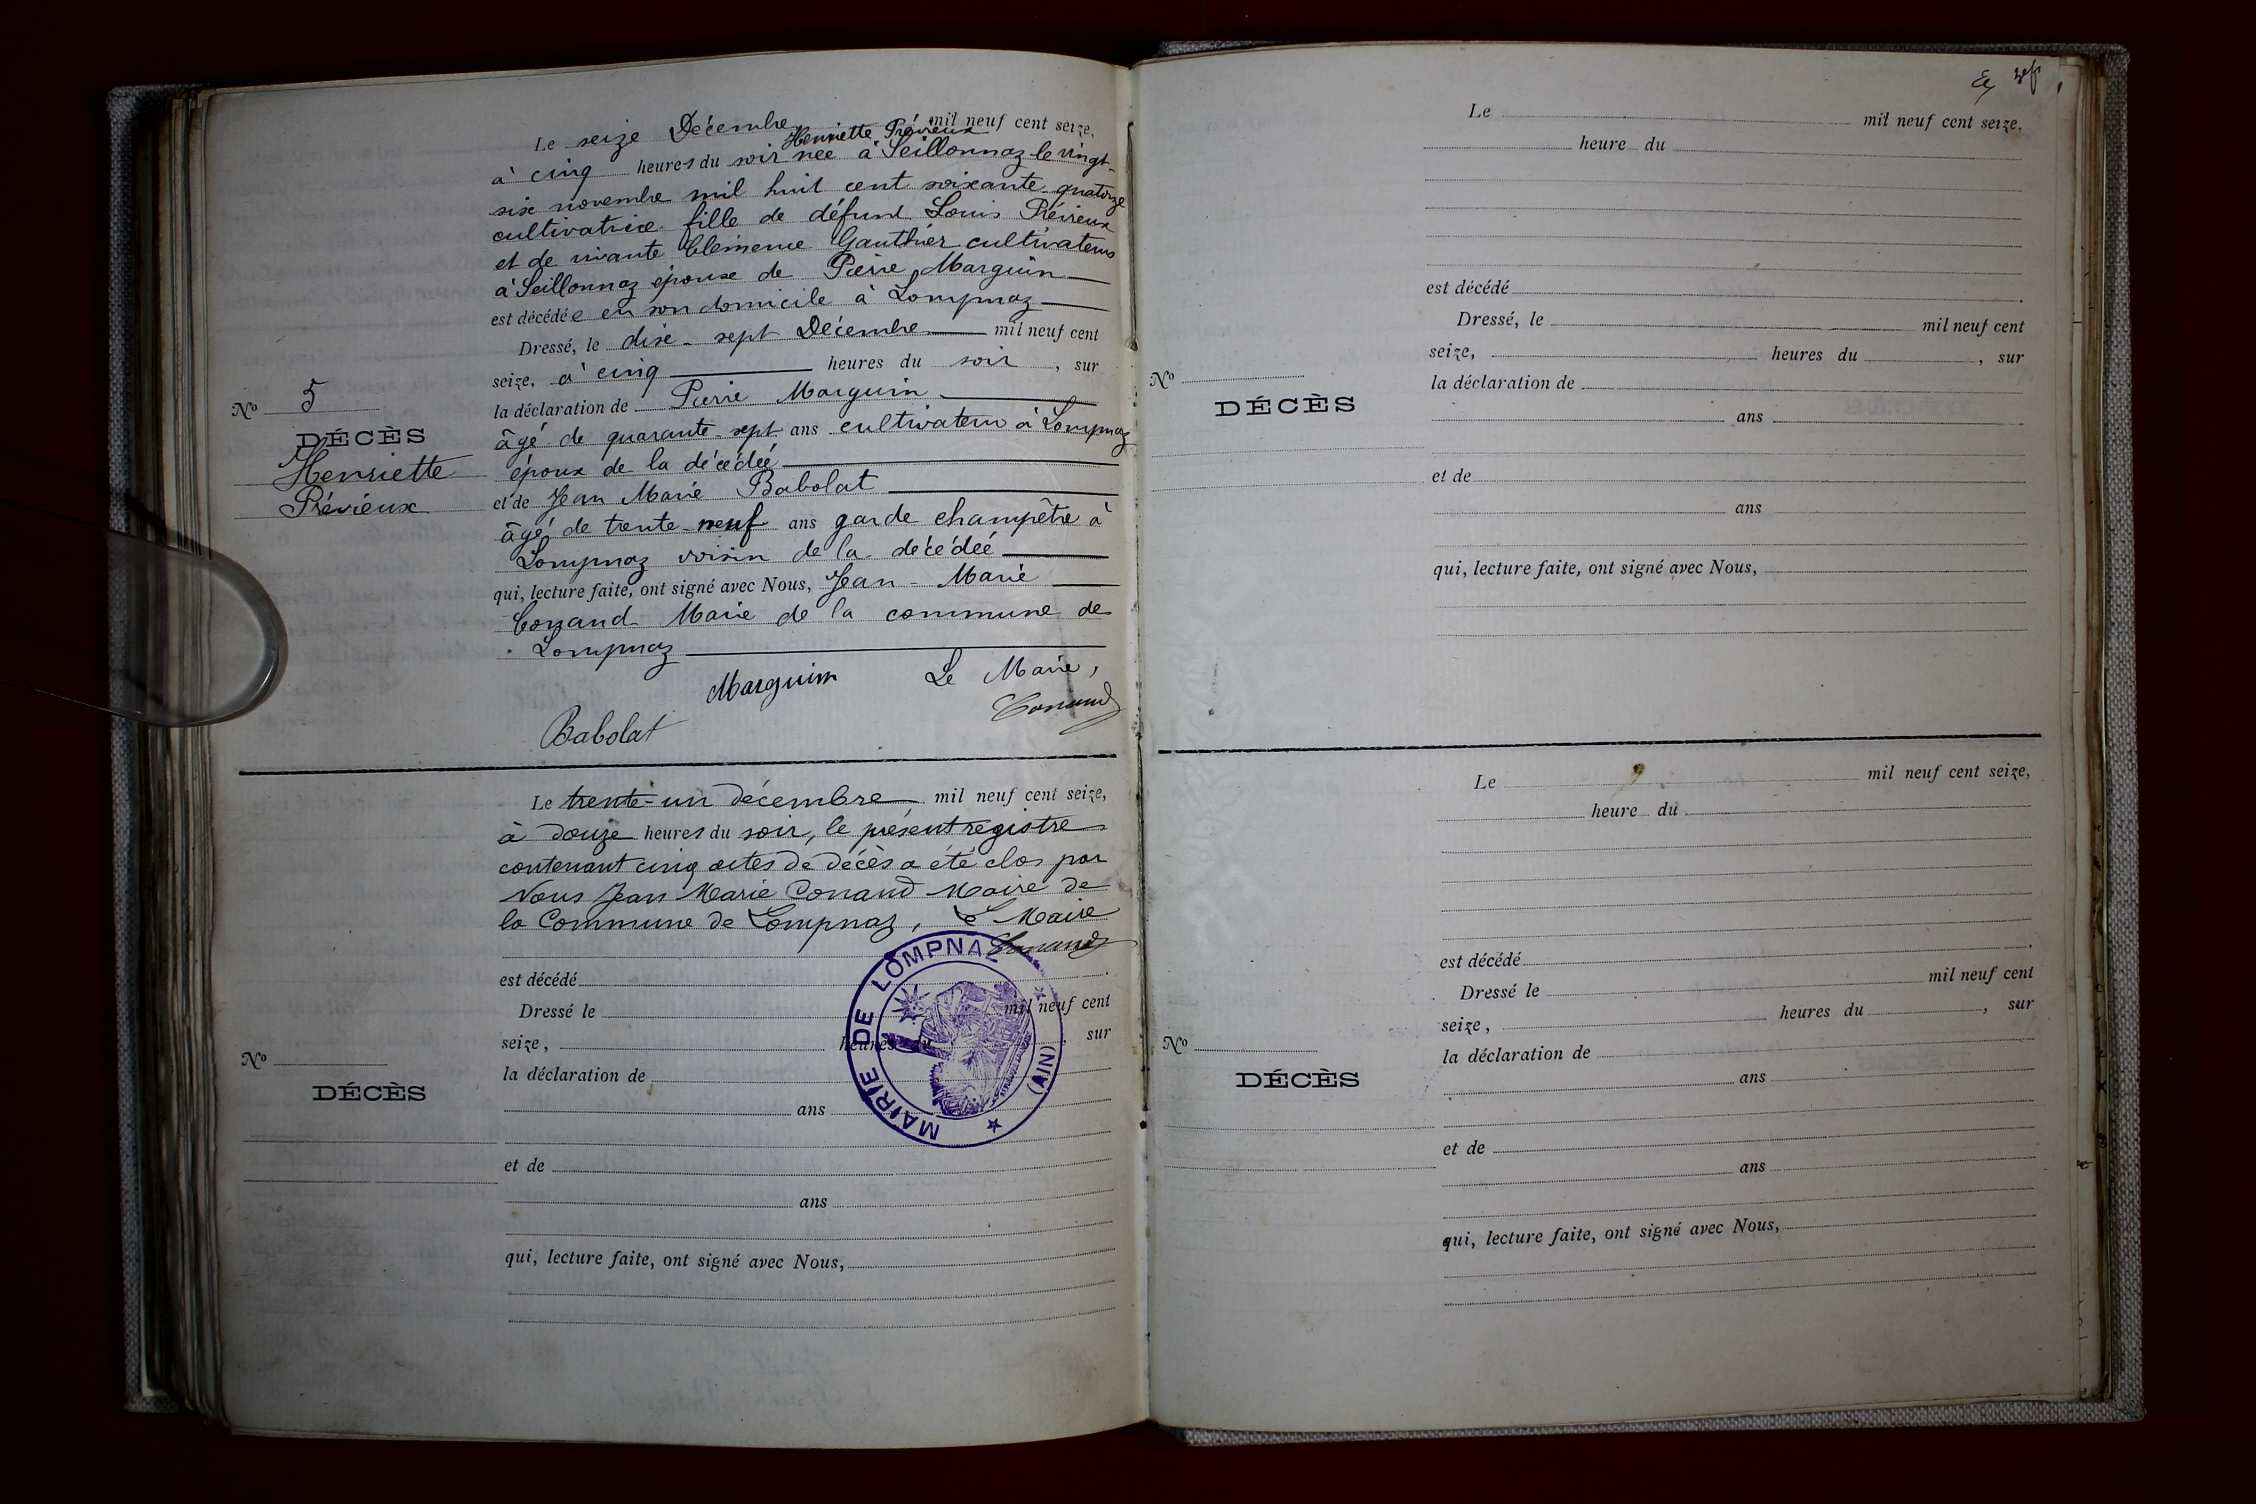 Le seize Décembre mil neuf cent seize,
Henriette Prévieux
à cinq heures du soir née à Seillonnaz le vingt-
six novembre mil huit cent soixante-quatorze
cultivatrice fille de défunt Louis Prévieux
et de vivante Clémence Gauthier cultivateurs
à Seillonnaz épouse de Pierre Marguin
est décédée en son domicile à Lompnaz
Dressé, le dix-sept Décembre mil neuf cent
seize, à cinq heures du soir, sur
la déclaration de Pierre Marguin
âgé de quarante-sept ans cultivateur à Lompnaz
époux de la décédée
et de Jean Marie Babolat
âgé de trente-neuf ans garde champêtre à
Lompnaz voisin de la décédée
qui, lecture faite, ont signé avec Nous, Jean-Marie
Conand Maire de la commune de
Lompnaz
Marguin Le Maire,
Conand
Babolat
No 5
DÉCÈS
Henriette
Prévieux
Le trente-un décembre mil neuf cent seize,
à douze heures du soir, le présent registre
contenant cinq actes de décès a été clos par
Nous Jean Marie Conand Maire de
la Commune de Lompnaz, Le Maire
Conand
MAIRIE DE LOMPNAZ (AIN)
est décédé
Dressé le mil neuf cent
seize, heures du , sur
la déclaration de
ans
et de
ans
qui, lecture faite, ont signé avec Nous,
No
DÉCÈS
Le mil neuf cent seize,
heure du
est décédé
Dressé, le mil neuf cent
seize, heures du , sur
la déclaration de
ans
et de
ans
qui, lecture faite, ont signé avec Nous,
No
DÉCÈS
Le mil neuf cent seize,
heure du
est décédé
Dressé le mil neuf cent
seize, heures du , sur
la déclaration de
ans
et de
ans
qui, lecture faite, ont signé avec Nous,
No
DÉCÈS